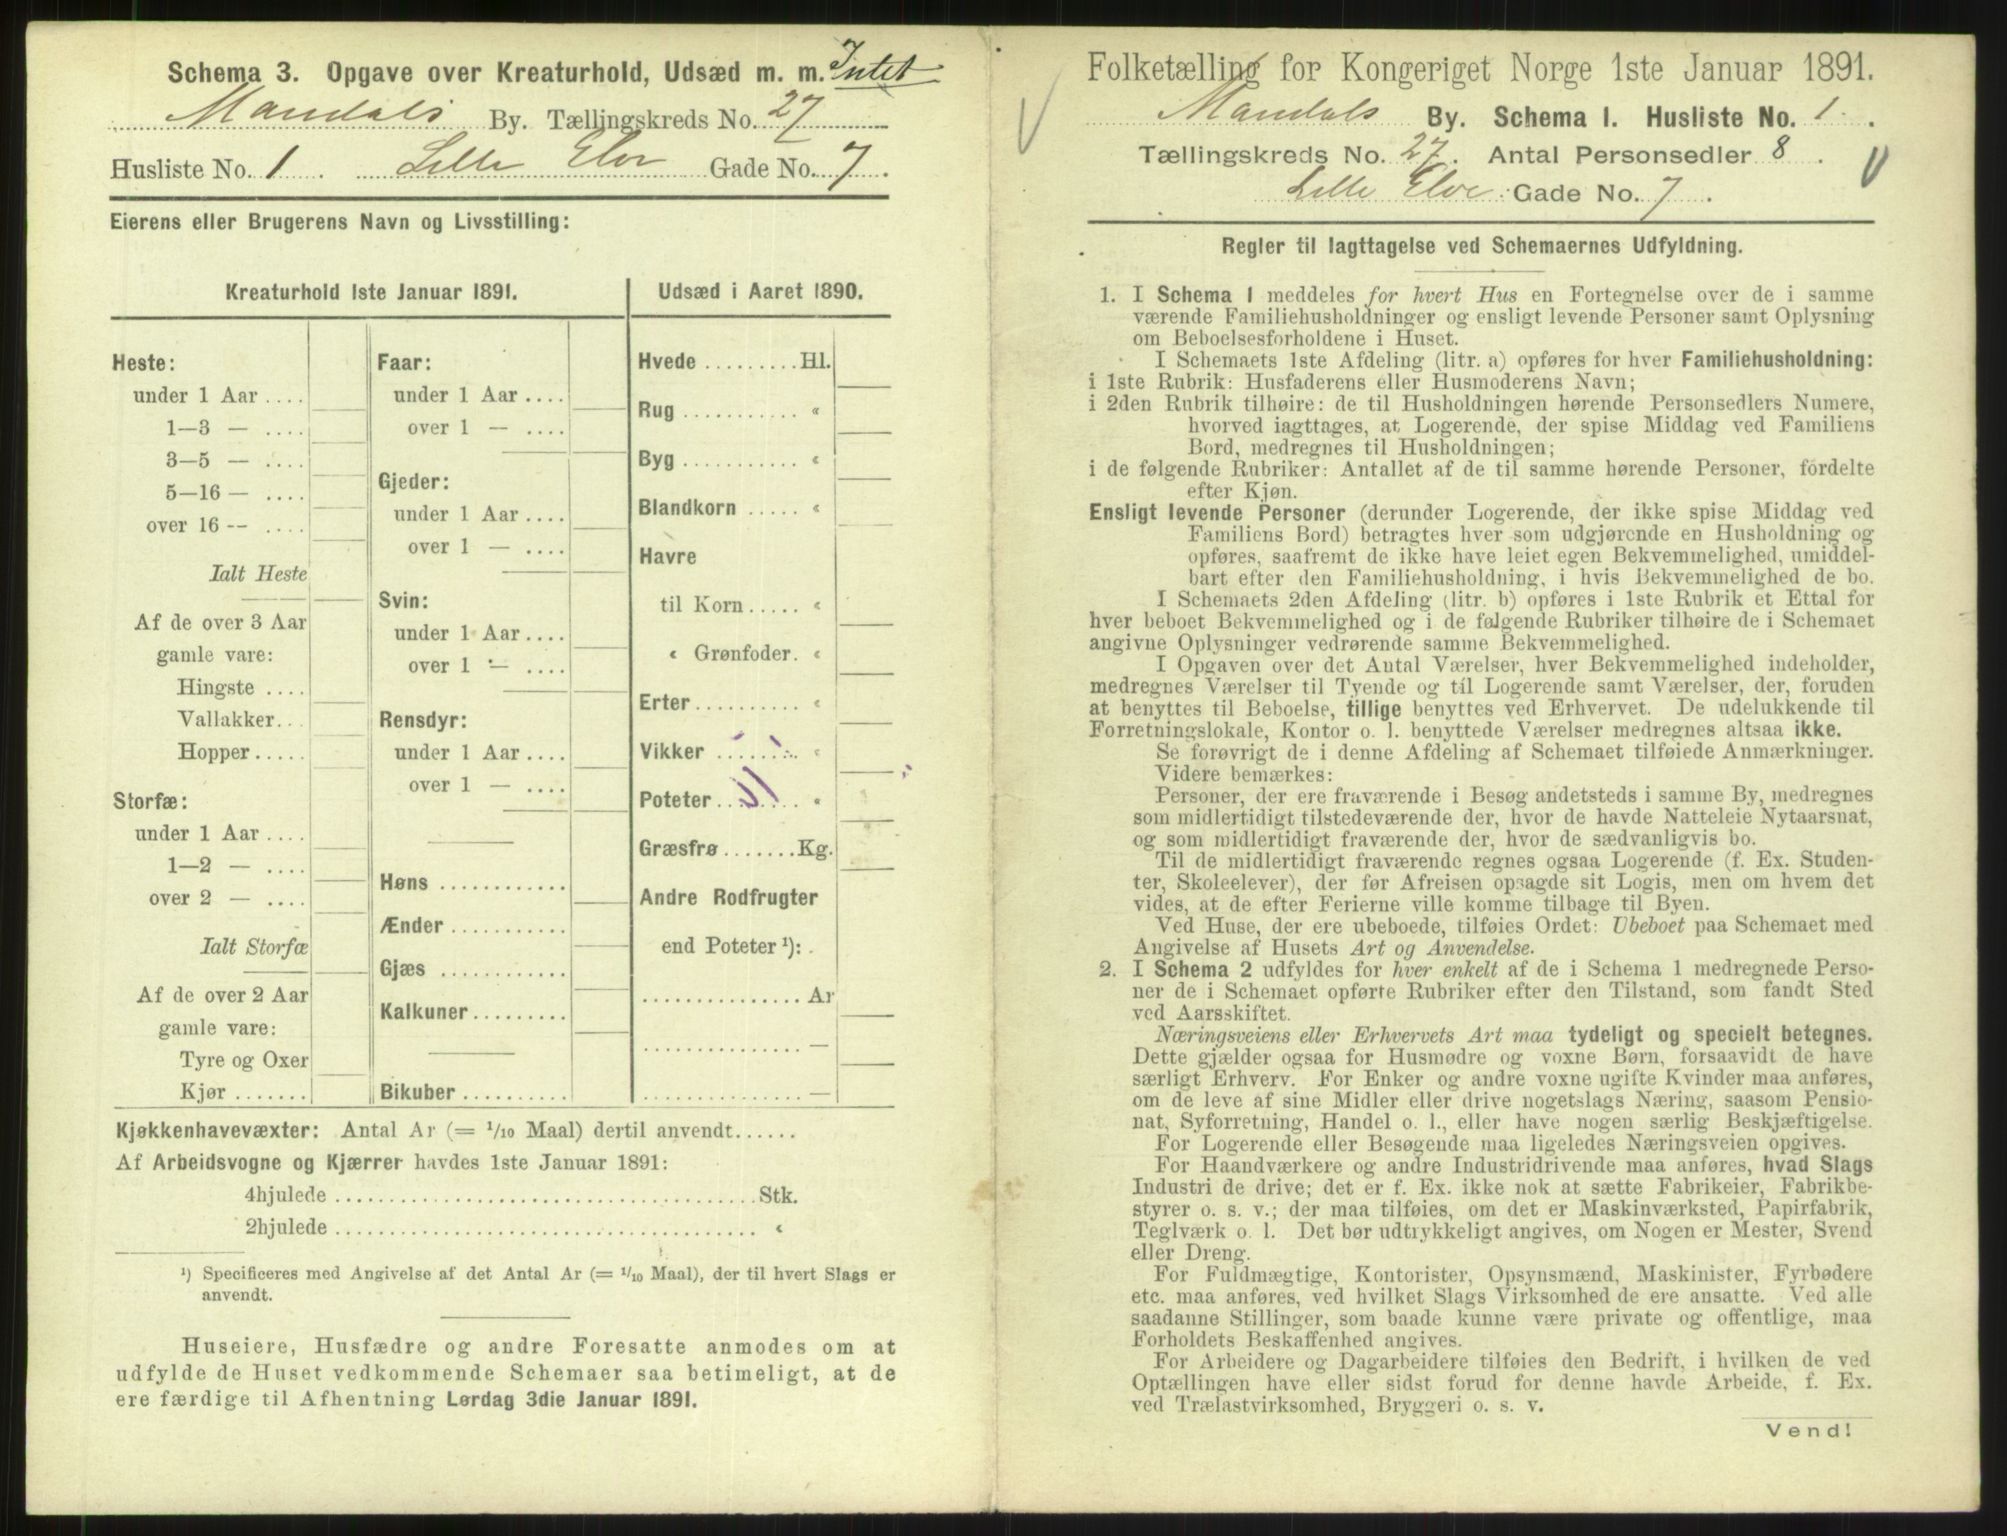 Schema 3. Opgave over Kreaturhold, Udsæd m. m. Intet
Mandals By. Tællingskreds No. 27
Husliste No. 1. Lille Elve Gade No. 7.
Eierens eller Brugerens Navn og Livsstilling:
Kreaturhold 1ste Januar 1891.
Heste:
under 1 Aar ....
1—3 — ....
3—5 — ....
5—16 — ....
over 16 -- ....
Ialt Heste
Af de over 3 Aar
gamle vare:
Hingste ....
Vallakker...
Hopper.....
Storfæ:
under 1 Aar ....
1—2 — ....
over 2 — ....
Ialt Storfæ
Af de over 2 Aar
gamle vare:
Tyre og Oxer
Kjør .......
Faar:
under 1 Aar ....
over 1 — ....
Gjeder:
under 1 Aar ....
over 1 — ....
Svin:
under 1 Aar ....
over 1 — ....
Rensdyr:
under 1 Aar ....
over 1 — ....
Høns ............
Ænder ...........
Gjæs ............
Kalkuner.........
Bikuber ..........
Udsæd i Aaret 1890.
Hvede .........Hl.
Rug ........... «
Byg ........... «
Blandkorn ..... «
Havre
til Korn ..... «
« Grønfoder. «
Erter .......... «
Vikker ........ «
Poteter ........ «
Græsfrø.......Kg.
Andre Rodfrugter
end Poteter ¹): .
............... Ar
............... —
............... —
Kjøkkenhavevæxter: Antal Ar (= 1/10 Maal) dertil anvendt......
Af Arbeidsvogne og Kjærrer havdes 1ste Januar 1891:
4hjulede ....................................... Stk.
2hjulede ....................................... «
¹) Specificeres med Angivelse af det Antal Ar (= 1/10 Maal), der til hvert Slags er
anvendt.
Huseiere, Husfædre og andre Foresatte anmodes om at
udfylde de Huset vedkommende Schemaer saa betimeligt, at de
ere færdige til Afhentning Lørdag 3die Januar 1891.
Folketælling for Kongeriget Norge 1ste Januar 1891.
Mandals By. Schema I. Husliste No. 1.
Tællingskreds No. 27. Antal Personsedler 8.
Lille Elve Gade No. 7.
Regler til Iagttagelse ved Schemaernes Udfyldning.
1. I Schema 1 meddeles for hvert Hus en Fortegnelse over de i samme
værende Familiehusholdninger og ensligt levende Personer samt Oplysning
om Beboelsesforholdene i Huset.
I Schemaets 1ste Afdeling (litr. a) opføres for hver Familiehusholdning:
i 1ste Rubrik: Husfaderens eller Husmoderens Navn;
i 2den Rubrik tilhøire: de til Husholdningen hørende Personsedlers Numere,
hvorved iagttages, at Logerende, der spise Middag ved Familiens
Bord, medregnes til Husholdningen;
i de følgende Rubriker: Antallet af de til samme hørende Personer, fordelte
efter Kjøn.
Ensligt levende Personer (derunder Logerende, der ikke spise Middag ved
Familiens Bord) betragtes hver som udgjørende en Husholdning og
opføres, saafremt de ikke have leiet egen Bekvemmelighed, umiddel-
bart efter den Familiehusholdning, i hvis Bekvemmelighed de bo.
I Schemaets 2den Afdeling (litr. b) opføres i 1ste Rubrik et Ettal for
hver beboet Bekvemmelighed og i de følgende Rubriker tilhøire de i Schemaet
angivne Oplysninger vedrørende samme Bekvemmelighed.
I Opgaven over det Antal Værelser, hver Bekvemmelighed indeholder,
medregnes Værelser til Tyende og til Logerende samt Værelser, der, foruden
at benyttes til Beboelse, tillige benyttes ved Erhvervet. De udelukkende til
Forretningslokale, Kontor o. l. benyttede Værelser medregnes altsaa ikke.
Se forøvrigt de i denne Afdeling af Schemaet tilføiede Anmærkninger.
Videre bemærkes:
Personer, der ere fraværende i Besøg andetsteds i samme By, medregnes
som midlertidigt tilstedeværende der, hvor de havde Natteleie Nytaarsnat,
og som midlertidigt fraværende der, hvor de sædvanligvis bo.
Til de midlertidigt fraværende regnes ogsaa Logerende (f. Ex. Studen-
ter, Skoleelever), der før Afreisen opsagde sit Logis, men om hvem det
vides, at de efter Ferierne ville komme tilbage til Byen.
Ved Huse, der ere ubeboede, tilføies Ordet: Ubeboet paa Schemaet med
Angivelse af Husets Art og Anvendelse.
2. I Schema 2 udfyldes for hver enkelt af de i Schema 1 medregnede Perso-
ner de i Schemaet opførte Rubriker efter den Tilstand, som fandt Sted
ved Aarsskiftet.
Næringsveiens eller Erhvervets Art maa tydeligt og specielt betegnes.
Dette gjælder ogsaa for Husmødre og voxne Børn, forsaavidt de have
særligt Erhverv. For Enker og andre voxne ugifte Kvinder maa anføres,
om de leve af sine Midler eller drive nogetslags Næring, saasom Pensio-
nat, Syforretning, Handel o. l., eller have nogen særlig Beskjæftigelse.
For Logerende eller Besøgende maa ligeledes Næringsveien opgives.
For Haandværkere og andre Industridrivende maa anføres, hvad Slags
Industri de drive; det er f. Ex. ikke nok at sætte Fabrikeier, Fabrikbe-
styrer o. s. v.; der maa tilføies, om det er Maskinværksted, Papirfabrik,
Teglværk o. l. Det bør udtrykkeligt angives, om Nogen er Mester, Svend
eller Dreng.
For Fuldmægtige, Kontorister, Opsynsmænd, Maskinister, Fyrbødere
etc. maa anføres, ved hvilket Slags Virksomhed de ere ansatte. Ved alle
saadanne Stillinger, som baade kunne være private og offentlige, maa
Forholdets Beskaffenhed angives.
For Arbeidere og Dagarbeidere tilføies den Bedrift, i hvilken de ved
Optællingen have eller sidst forud for denne havde Arbeide, f. Ex.
ved Trælastvirksomhed, Bryggeri o. s. v.
Vend!